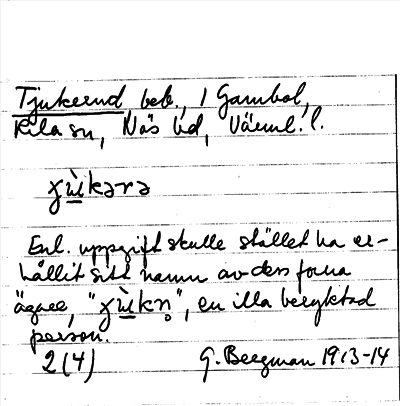 Tjukerud beb., 1 Gambol,
Kila sn, Näs hd, Värml. l.
Enl. uppgift skulle stället ha er-
hållit sitt namn av dess forna
ägare, en illa beryktad
person.
2(4) G. Bergman 1913-14